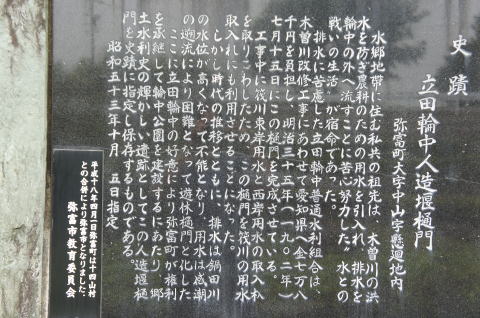 史蹟
立田輪中人造堰樋門
弥富町大字中山字懸廻地内
水郷地帯に住む私共の祖先は、木曽川の洪
水を防ぎ農耕のための用水を引入れ、排水を
輪中の外へ流すことに苦心努力した。水との
戦いの生活が宿命であった。
排水に苦慮した立田輪中普通水利組合は、
木曽川改修工事にあわせて愛知県へ金七万八
千円を負担し、明治三十五年(一九〇二年)
七月十五日にこの樋門を完成させている。
工事中に筏川東岸用水と西岸用水の取入杁
を取りこわしたため、この樋門を筏川の用水
取入れにも利用させることになった。
しかし時代の推移とともに、排水は鍋田川
の水位が高くなって不能となり、用水は感潮
の遡流により困難となって遊休樋門と化した
ここに立田輪中の好意により弥富町が権利
を承継して輪中公園を建設するにあたり、郷
土水利史の輝かしい遺跡としてこの人造堰樋
門を史蹟に指定し保存するものである。
昭和五十三年十月 五日指定
平成十八年四月一日弥富町は十四山村
との合併により弥富市となりました。
弥富市教育委員会